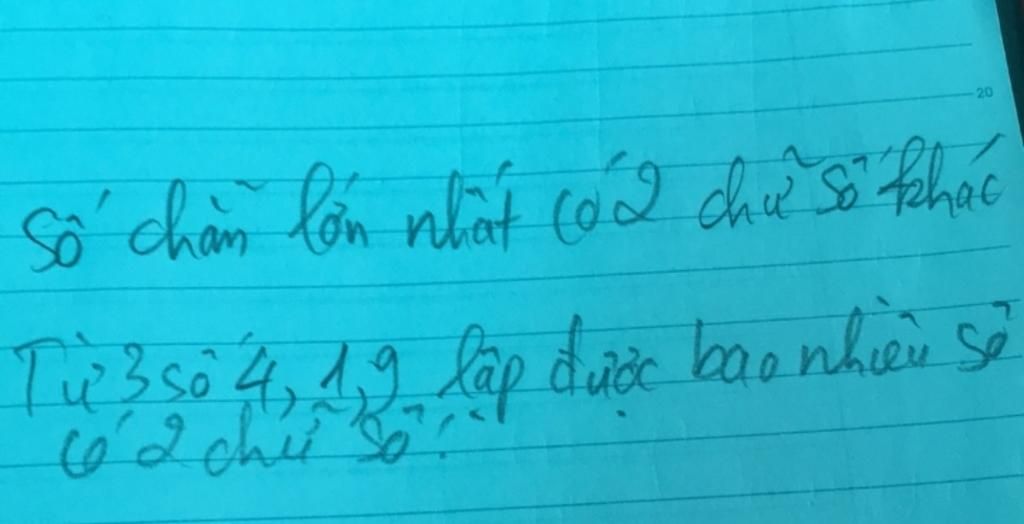 20
Số chẵn lớn nhất có 2 chữ số khác
Từ 3 số 4, 1, 9 lập được bao nhiêu số
có 2 chữ số?